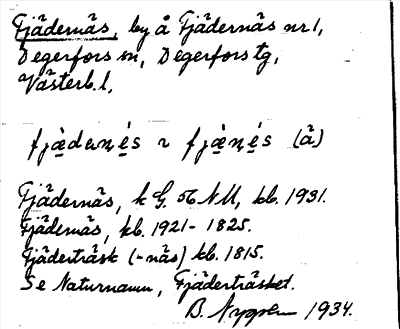 Fjädernäs, by å Fjädernäs nr 1,
Degerfors sn, Degerfors tg,
Västerb. l.
fjädernäs, k G. 56 NU, kb. 1931.
Fjädernäs, kb. 1921-1825.
Fjäderträsk (-näs) kb. 1815.
Se Naturnamn, Fjäderträsket.
B. 1934.